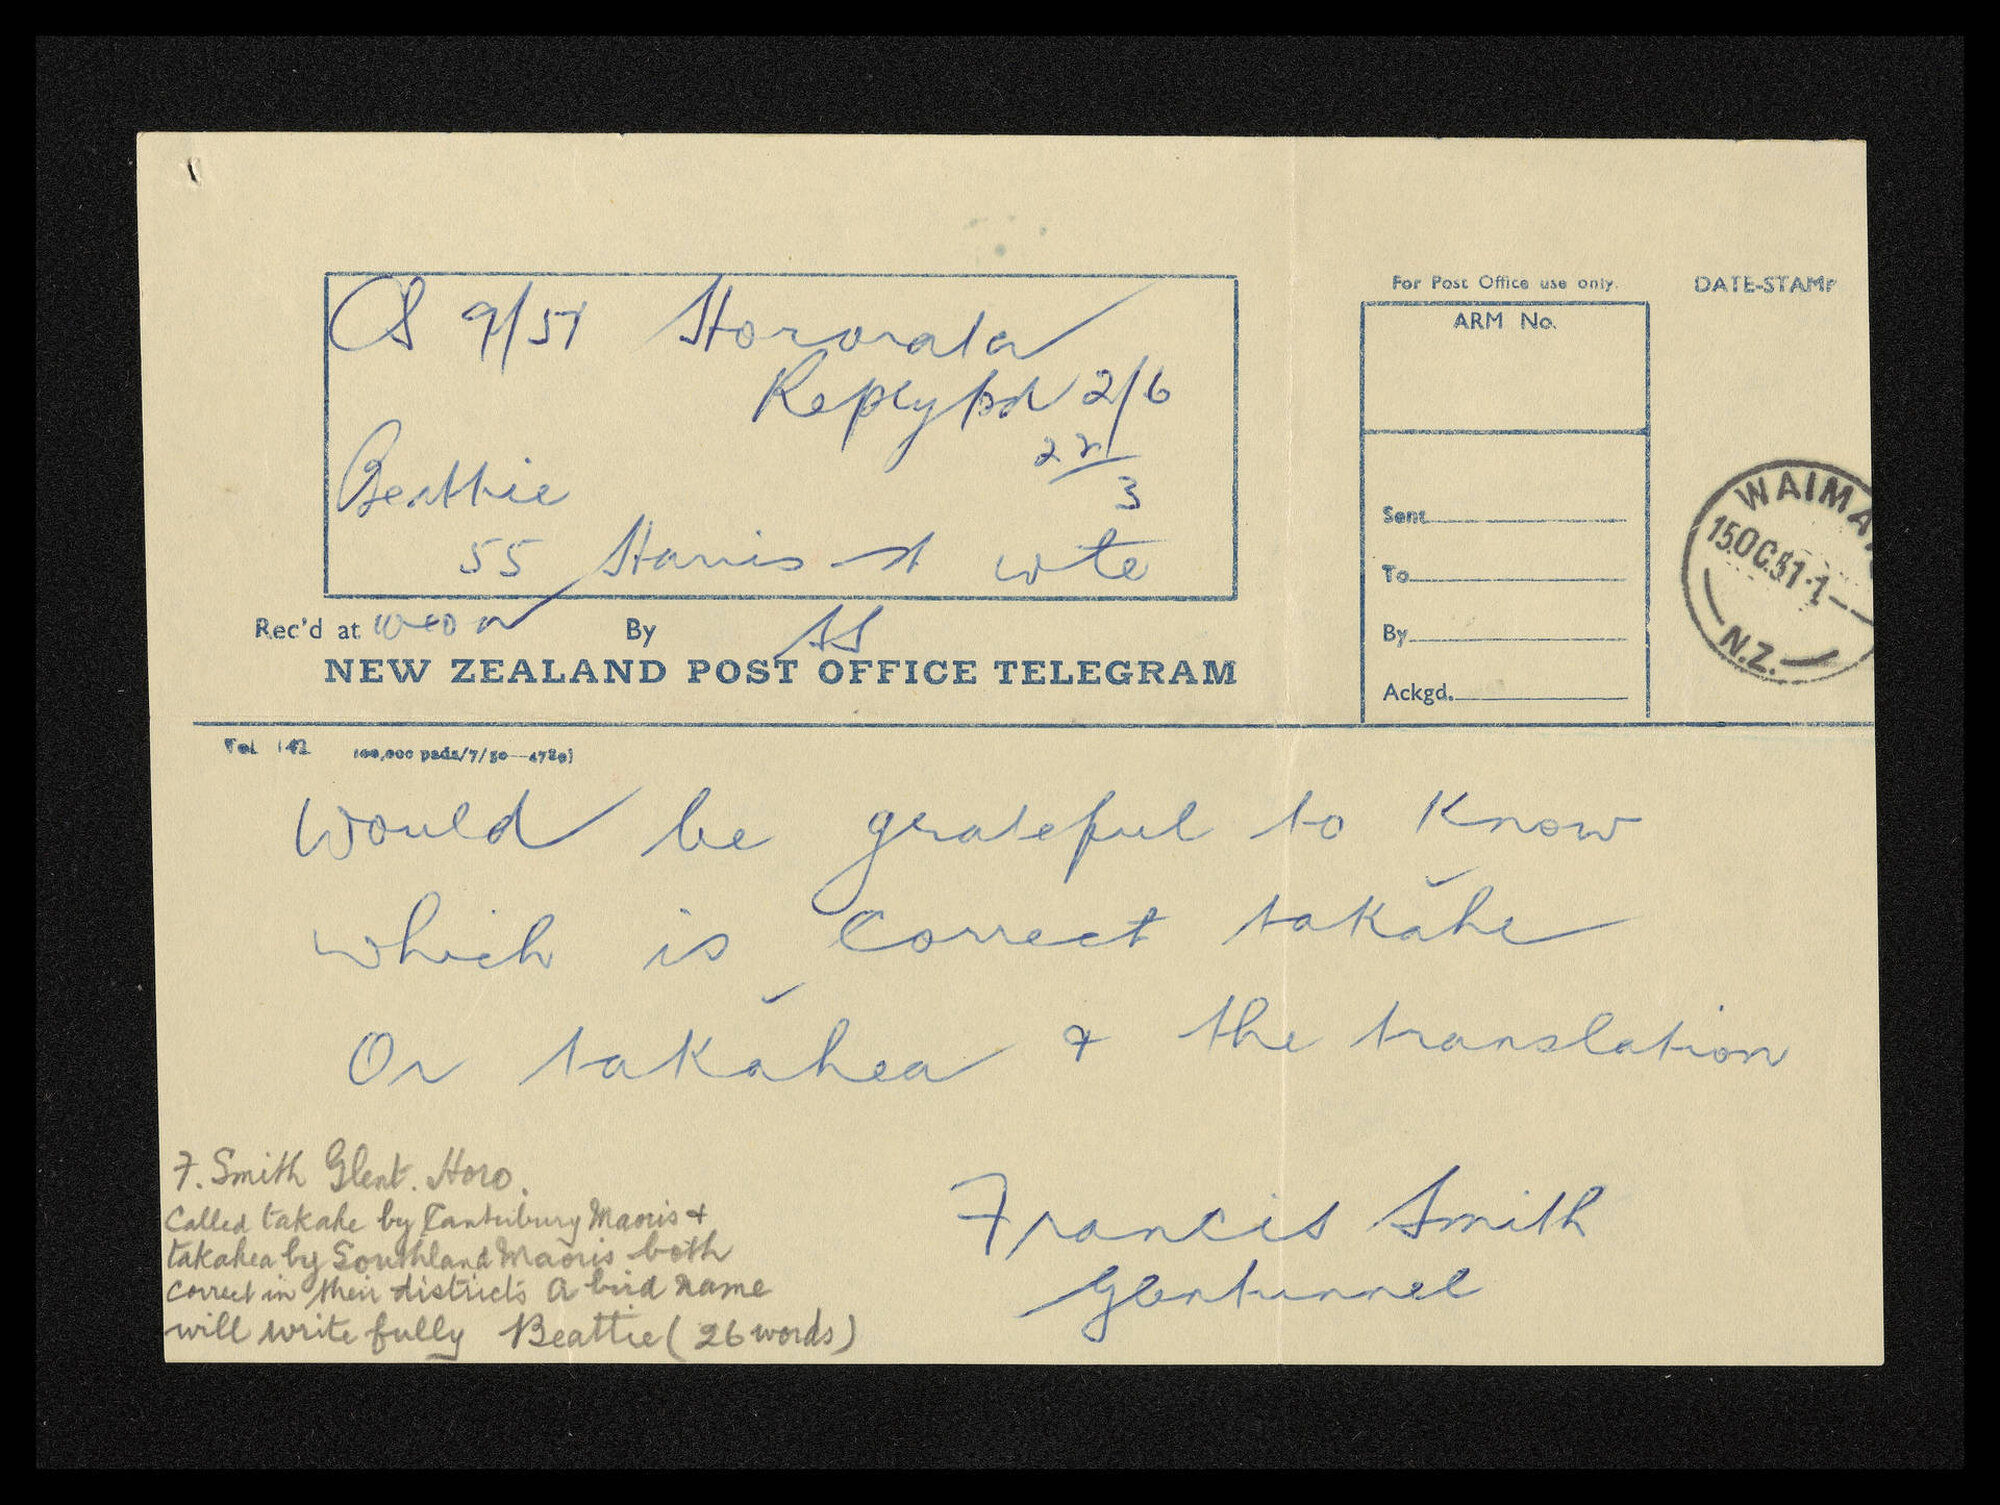 9/51 Hororata
Replypd 2/6
22/3
Beattie
55 Harris st wte
Rec'd at By
NEW ZEALAND POST OFFICE TELEGRAM
For Post Office use only.
ARM No.
Sent
To
By
Ackgd.
DATE-STAMP
WAIMA
15 OC 51·1
N.Z.
Tel 142 (60,000 pads/7/50—4720)
Would be grateful to Know
which is Correct takahe
Or takahea & the translation
Francis Smith
Glentunnel
F. Smith Glent. Horo.
Called takahe by Canterbury Maoris &
takahea by Southland Maoris both
correct in their districts A bird name
will write fully Beattie (26 words)